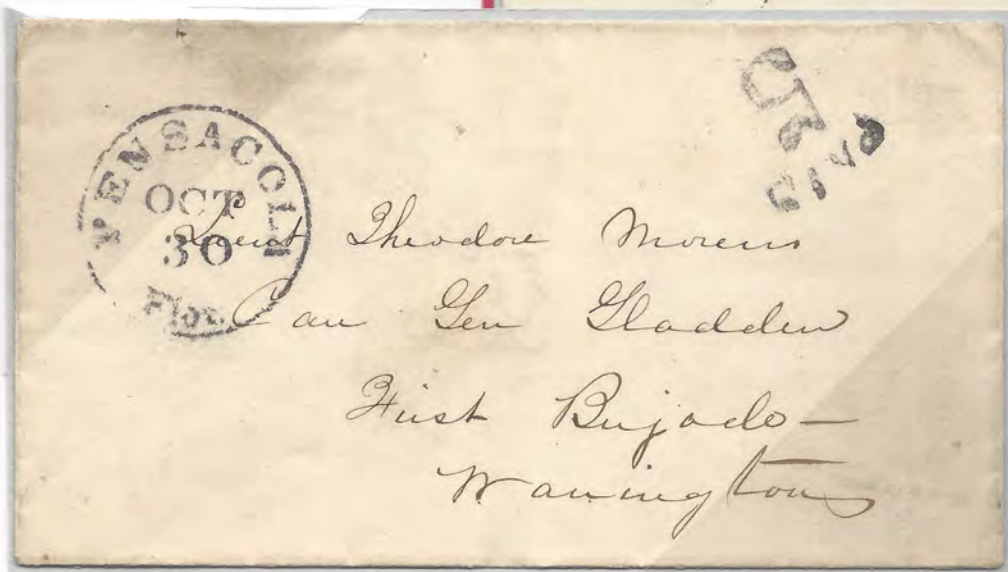 PENSACOLA
OCT
30
Flor.
PAID
5
Lieut Theodore Moreno
Care Gen Gladden
First Brigade —
Warrington